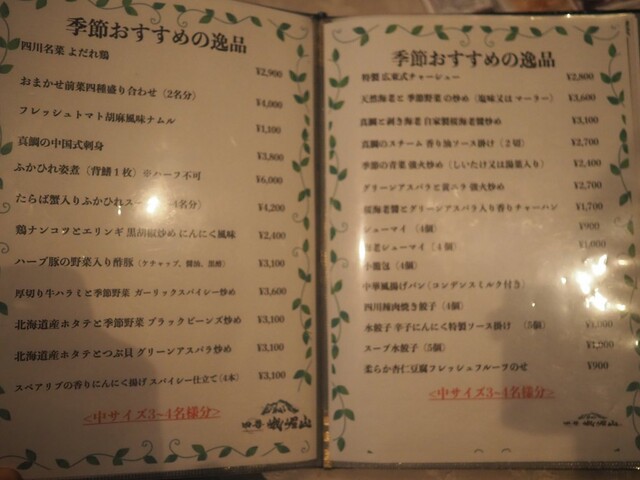 季節おすすめの逸品
四川名菜 よだれ鶏
¥2,900
おまかせ前菜四種盛り合わせ（2名分）
¥4,000
フレッシュトマト胡麻風味ナムル
¥1,100
真鯛の中国式刺身
¥3,800
ふかひれ姿煮（背鰭1枚）※ハーフ不可
¥6,000
たらば蟹入りふかひれスープ 4名分）
¥4,200
鶏ナンコツとエリンギ 黒胡椒炒め にんにく風味
¥2,400
ハーブ豚の野菜入り酢豚（ケチャップ、醤油、黒酢）
¥3,100
厚切り牛ハラミと季節野菜 ガーリックスパイシー炒め
¥3,600
北海道産ホタテと季節野菜 ブラックビーンズ炒め
¥3,100
北海道産ホタテとつぶ貝 グリーンアスパラ炒め
¥3,100
スペアリブの香りにんにく揚げ スパイシー仕立て（4本）
¥3,100
<中サイズ3~4名様分>
四谷 峨嵋山
季節おすすめの逸品
特製 広東式チャーシュー
¥2,800
天然海老と 季節野菜 の炒め（塩味又は マーラー）
¥3,600
真鯛と剥き海老 自家製桜海老醤炒め
¥3,100
真鯛のスチーム 香り油ソース掛け（2切）
¥2,700
季節の青菜 強火炒め（しいたけ又は湯葉入り）
¥2,400
グリーンアスパラと黄ニラ 強火炒め
¥2,700
桜海老醤とグリーンアスパラ入り香りチャーハン
¥1,700
シューマイ（4個）
¥900
老シューマイ（4個）
¥1,000
小籠包（4個）
中華風揚げパン（コンデンスミルク付き）
四川辣肉焼き餃子（4個）
水餃子 辛子にんにく特製ソース掛け （5個）
スープ水餃子（5個）
柔らか杏仁豆腐フレッシュフルーツのせ
¥900
<中サイズ3~4名様分>
四谷 峨嵋山